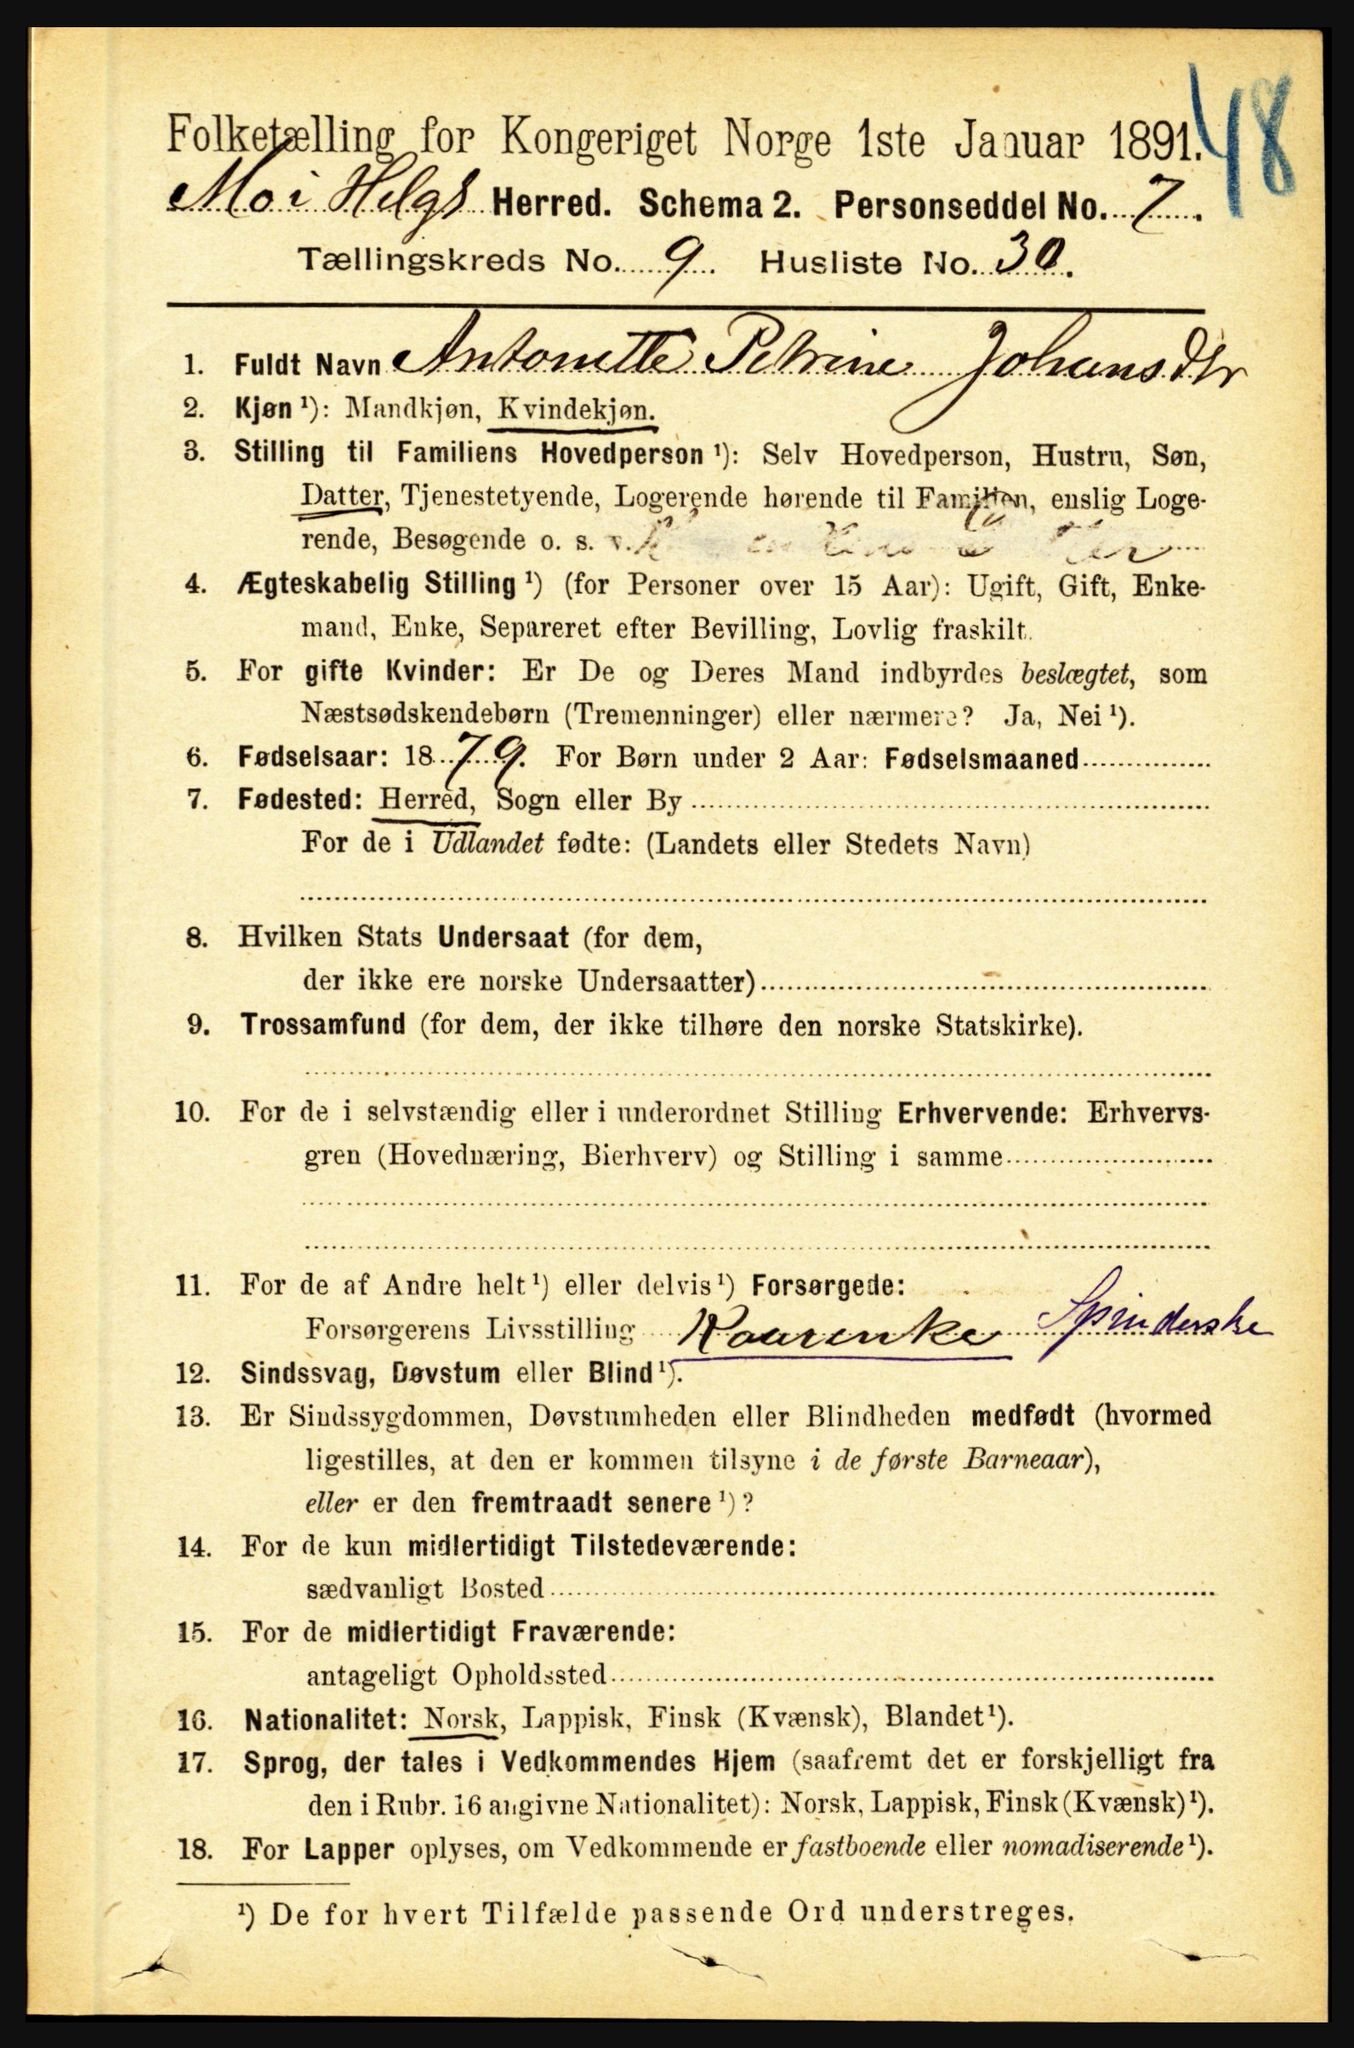 48
Folketælling for Kongeriget Norge 1ste Januar 1891.
Mo i Helgs Herred. Schema 2. Personseddel No. 7.
Tællingskreds No. 9. Husliste No. 30.
1. Fuldt Navn Antonette Petrine Johansdtr
2. Kjøn ¹): Mandkjøn, Kvindekjøn.
3. Stilling til Familiens Hovedperson ¹): Selv Hovedperson, Hustru, Søn,
Datter, Tjenestetyende, Logerende hørende til Familien, enslig Loge-
rende, Besøgende o. s. v.
4. Ægteskabelig Stilling ¹) (for Personer over 15 Aar): Ugift, Gift, Enke-
mand, Enke, Separeret efter Bevilling, Lovlig fraskilt.
5. For gifte Kvinder: Er De og Deres Mand indbyrdes beslægtet, som
Næstsødskendebørn (Tremenninger) eller nærmere? Ja, Nei ¹).
6. Fødselsaar: 1879. For Børn under 2 Aar: Fødselsmaaned
7. Fødested: Herred, Sogn eller By
For de i Udlandet fødte: (Landets eller Stedets Navn)
8. Hvilken Stats Undersaat (for dem,
der ikke ere norske Undersaatter)
9. Trossamfund (for dem, der ikke tilhøre den norske Statskirke).
10. For de i selvstændig eller i underordnet Stilling Erhvervende: Erhvervs-
gren (Hovednæring, Bierhverv) og Stilling i samme
11. For de af Andre helt ¹) eller delvis ¹) Forsørgede:
Forsørgerens Livsstilling Kaarenke Spinderske
12. Sindssvag, Døvstum eller Blind ¹).
13. Er Sindssygdommen, Døvstumheden eller Blindheden medfødt (hvormed
ligestilles, at den er kommen tilsyne i de første Barneaar),
eller er den fremtraadt senere ¹)?
14. For de kun midlertidigt Tilstedeværende:
sædvanligt Bosted
15. For de midlertidigt Fraværende:
antageligt Opholdssted
16. Nationalitet: Norsk, Lappisk, Finsk (Kvænsk), Blandet ¹).
17. Sprog, der tales i Vedkommendes Hjem (saafremt det er forskjelligt fra
den i Rubr. 16 angivne Nationalitet): Norsk, Lappisk, Finsk (Kvænsk) ¹).
18. For Lapper oplyses, om Vedkommende er fastboende eller nomadiserende ¹).
¹) De for hvert Tilfælde passende Ord understreges.